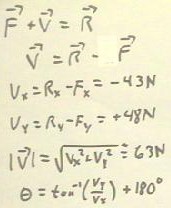 F⃗ + V⃗ = R⃗
V⃗ = R⃗ - F⃗
Vx = Rx - Fx = -43N
Vy = Ry - Fy = +48N
|V⃗| = √(Vx² + Vy²) = 63N
θ = tan⁻¹(Vy/Vx) + 180°